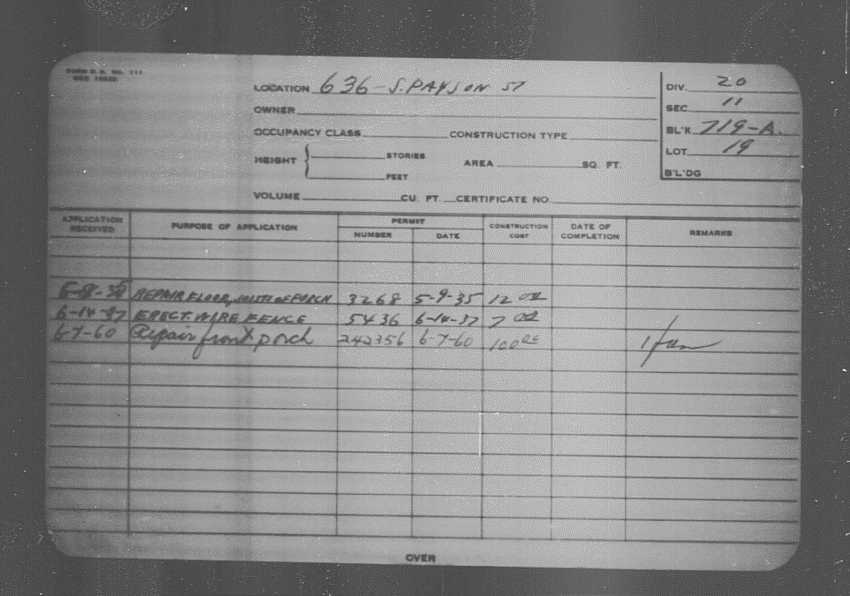 FORM B. E. No. 111
LOCATION 636 - S. PAYSON ST
DIV. 20
OWNER
SEC. 11
OCCUPANCY CLASS CONSTRUCTION TYPE
BL'K 719-A.
HEIGHT STORIES AREA SQ. FT.
LOT 19
FEET
B'L'DG
VOLUME CU. FT. CERTIFICATE NO.
APPLICATION RECEIVED PURPOSE OF APPLICATION PERMIT NUMBER DATE CONSTRUCTION COST DATE OF COMPLETION REMARKS
REPAIR FLOOR, JOISTS OF PORCH 3268 5-9-35 12 00
6-14-37 ERECT. WIRE FENCE 5436 6-14-37 7 00
6-7-60 Repair front porch 242356 6-7-60 100 00 1 fam
OVER